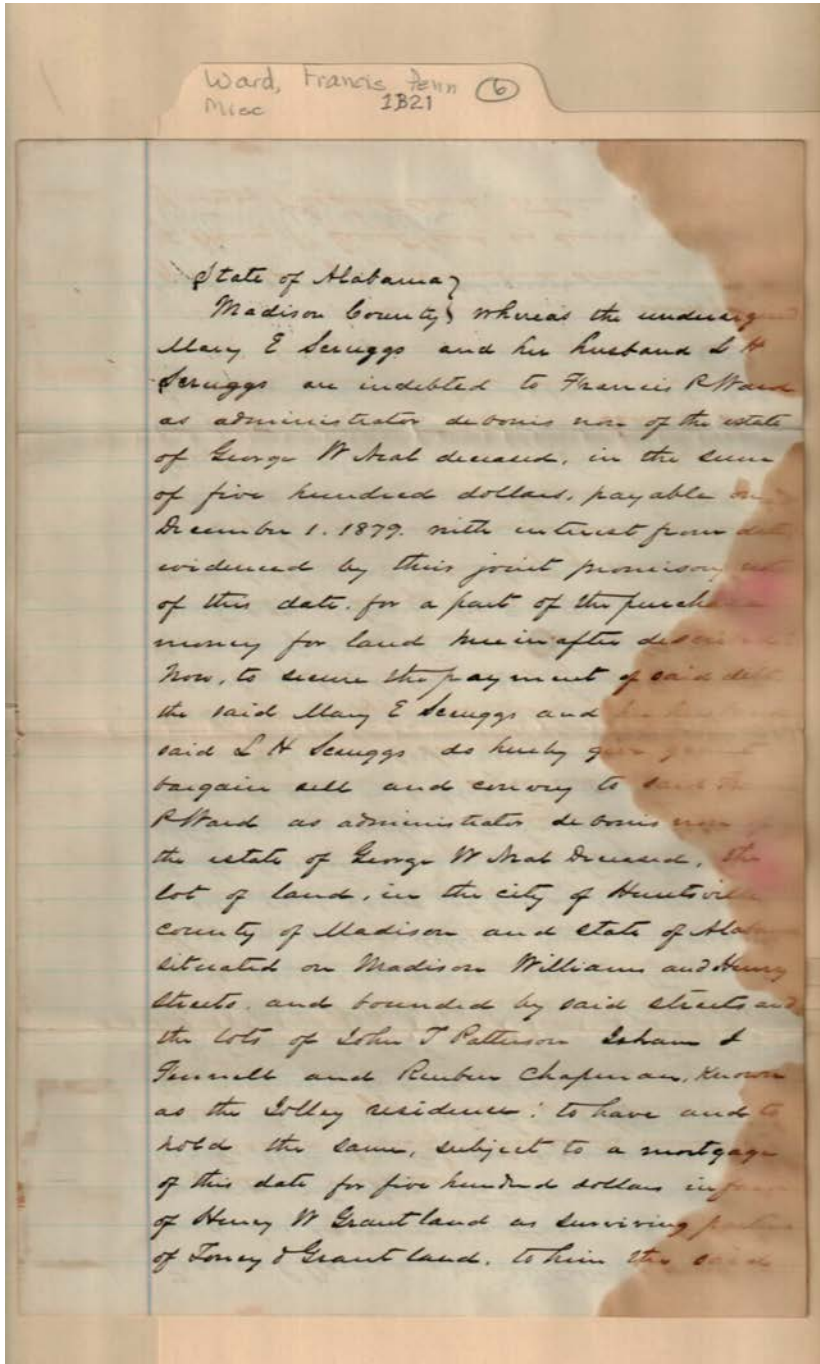 Ward, Francis Penn 6
Misc 1B21
State of Alabama }
Madison County } whereas the undersigned
Mary E Scruggs and her husband L H
Scruggs are indebted to Francis P Ward
as administrator de bonis non of the estate
of George W Neal deceased, in the sum
of five hundred dollars, payable on
December 1. 1879. with interest from date
evidenced by their joint promisory
of this date. for a part of the purchase
money for land hereinafter
Now, to secure the payment of said debt
the said Mary E Scruggs and
said L H Scruggs do hereby give
bargain sell and convey to said
P Ward as administrator de bonis non
the estate of George W Neal Deceased, the
lot of land, in the city of Huntsville
county of Madison and state of Alabama
situated on Madison Williams and Henry
streets. and bounded by said streets and
the lots of John T Patterson Isham J
Fennell and Reuben Chapman, Known
as the Jolley residence; to have and to
hold the same, subject to a mortgage
of this date for five hundred dollars in
of Henry W Grantland as surviving
of Toney & Grantland. to him the said